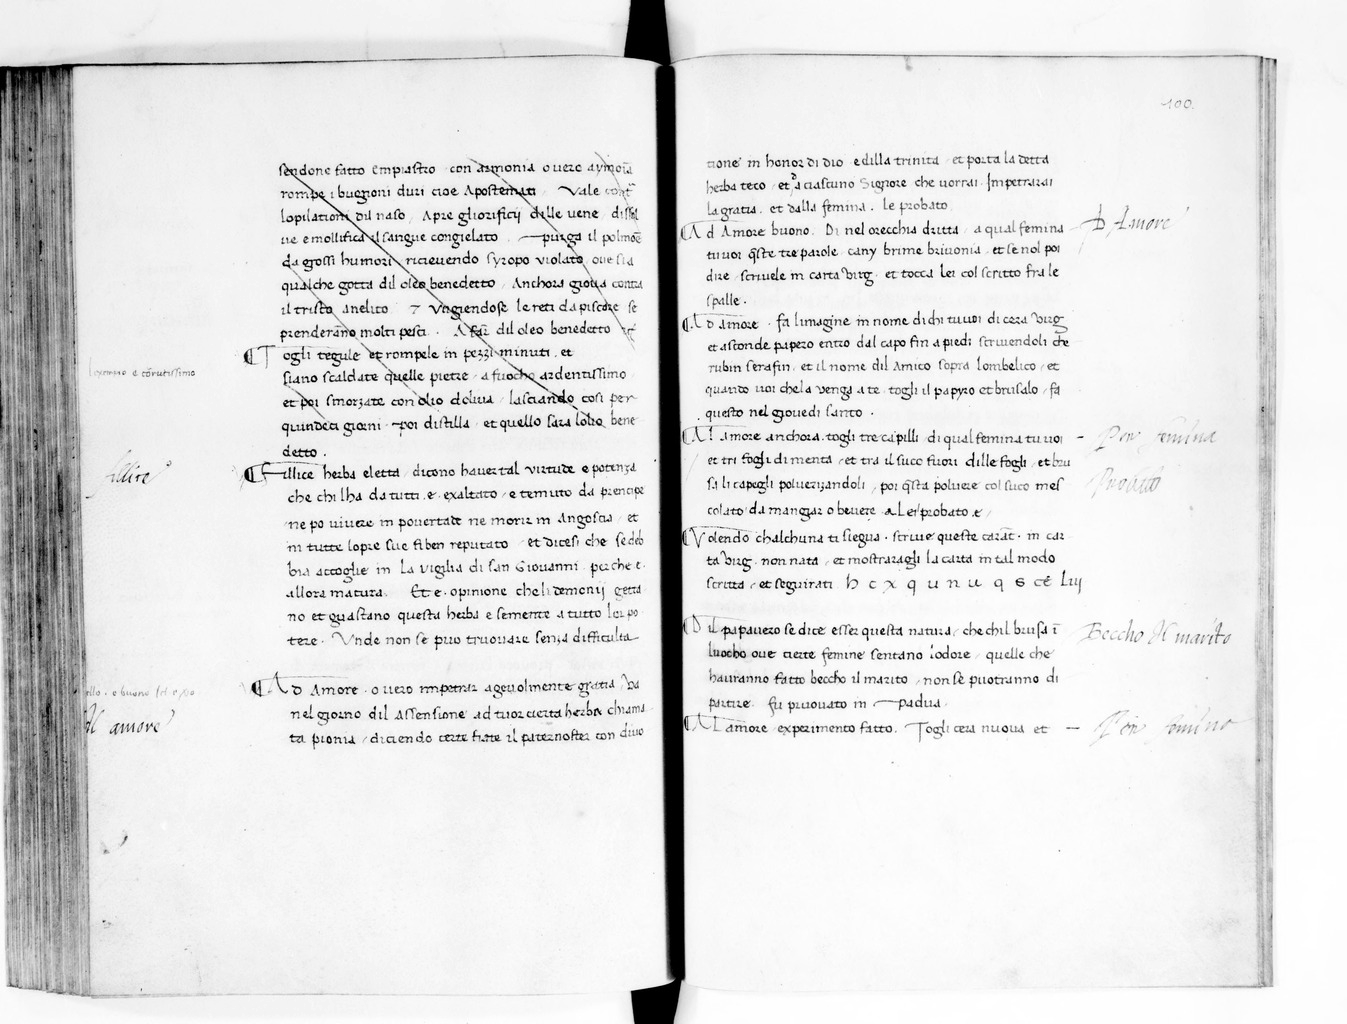 sendone fatto empiastro con armonia overo aymoīa
rompe i bugnoni duri cioe Apostemati Vale cont̄
lopilationi dil naso, Apre gliorificij delle vene, dissol
ue e mollifica il sangue congielato. purga il polmōe
da grossi humori, ricievendo syropo violato, ove sia
qualche gotta dil oleo benedetto, Anchora giova contra
il tristo anelito. 7 Ungiendose le reti da piscare se
prenderanno molti pesci. A far dil oleo benedetto
Togli tegule et rompele in pezzi minuti. et
siano scaldate quelle pietre, a fuocho ardentissimo
et poi smorzate con olio doliva, lasciando cosi per
quindeci giorni poi distilla, et quello sara lolio bene
detto.
e cōrutissimo
Fillice herba eletta, dicono haver tal virtude e potenza
che chi lha da tutti e exaltato, e temuto da prencipe
ne po vivere in povertade ne morir in Angoscia, et
in tutte lopre sue fi ben reputato, et dicesi che se deb
bia accoglie in La vigilia di san Giovanni perche e
allora matura. Et e opinione che li demonij getta
no et guastano questa herba e semente a tutto lor po
tere. Unde non se puo truovare senza difficulta
fillice
Ad Amore. overo impetrar agevolmente gratia, Va
nel giorno dil Assensione ad tuor cierta herba chiama
ta pionia, diciendo certe fiate il paternoster con divo
amore
100.
tione in honor di dio e dilla trinita, et porta la detta
herba teco, et a ciascuno Signore che vorrai Impetrarai
la gratia. et dalla femina. le probato,
Ad Amore buono. Di nel orecchia dritta, a qual femina
tu voi q̄ste tre parole. cany brime brivonia, et se nol poi
dire, scrivele in carta virg. et tocca lei col scritto fra le
spalle.
D Amore
Ad amore. fa limagine in nome di chi tu voi di cera virg
et asconde papero entro dal capo fin a piedi scrivendoli che
rubin serafin, et il nome dil Amico sopra lombelico, et
quando voi che la venga a te. togli il papyro et brusalo, fa
questo nel giovedi santo.
Al amore anchora. togli tre capilli di qual femina tu voi
et tri fogli di menta, et tra il suco fuori dille fogli, et bru
sa li capegli polverizandoli, poi q̄sta polvere col suco mes
colato da mangiar o bevere a Lei probato e,
Per femina
Probato
Volendo chalchuna ti siegua. scrive queste carat̄. in car
ta virg. non nata, et mostraragli la carta in tal modo
scritta, et seguirati h c x q u n u q s cē Luj
Dil papavero se dice esser questa natura, che chil brusa ī
luocho ove cierte femine sentano lodore, quelle che
hauranno fatto beccho il marito, non se puotranno di
partire. fu pruovato in Padua.
Beccho Il marito
Al amore experimento fatto. Togli cera nuova et
Per femina